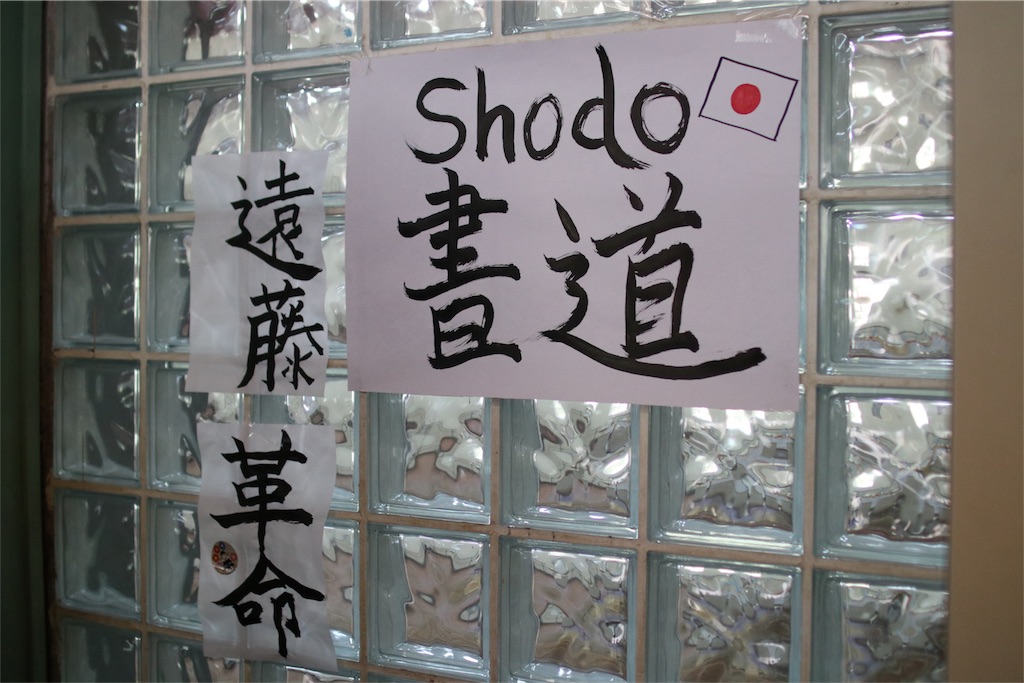 Shodo
書道
遠藤
革命